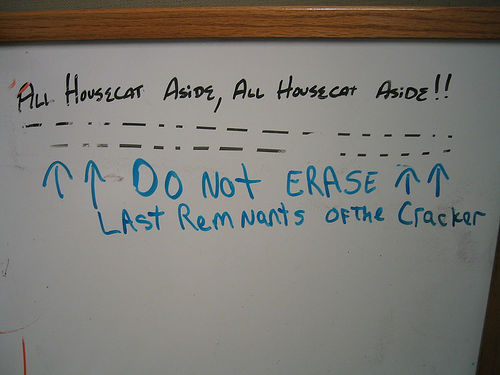 All Housecat Aside, All Housecat Aside!!
↑ ↑ Do Not ERASE ↑ ↑
LAst RemNants OF The Cracker